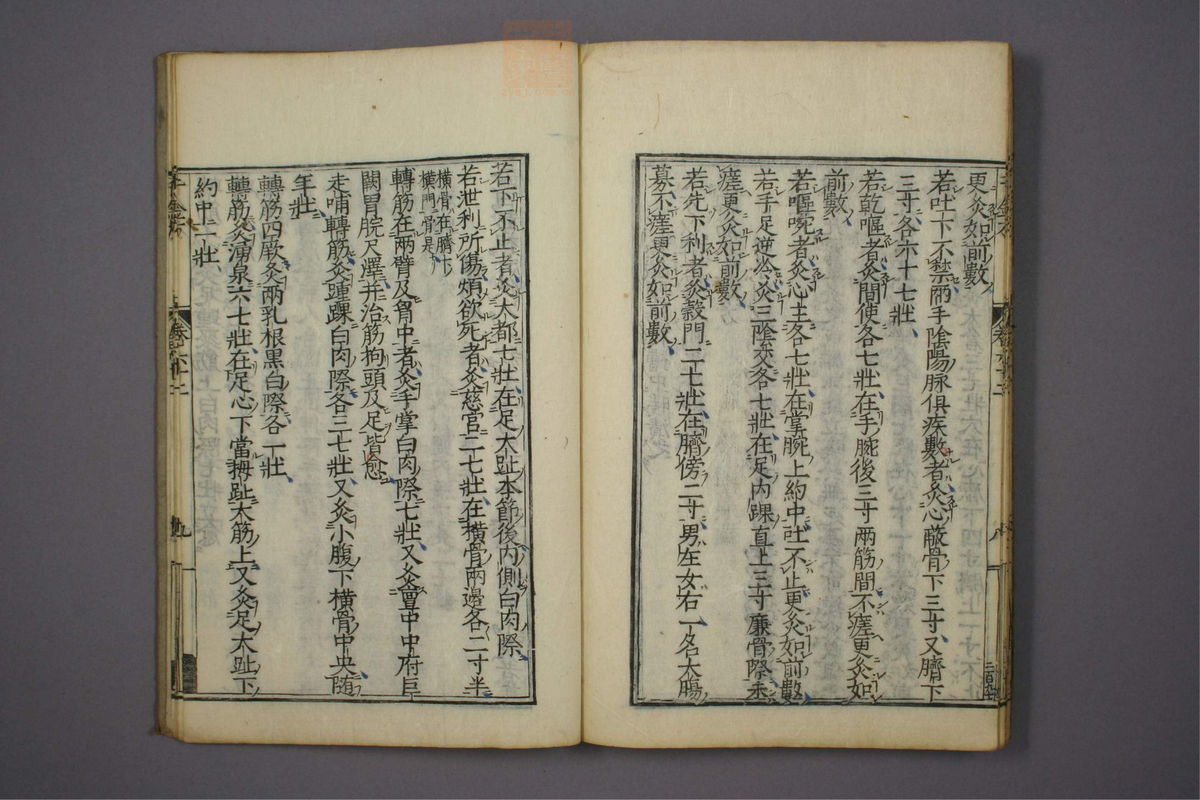 更灸如前數
若吐下不禁兩手陰陽脉俱疾數者灸心蔽骨下三寸又臍下
三寸各六十七壯
若乾嘔者灸間使各七壯在手腕後三寸兩筋間不瘥更灸如
前數
若嘔啘者灸心主各七壯在掌腕上約中吐不止更灸如前數
若手足逆冷灸三陰交各七壯在足內踝直上三寸廉骨際未
瘥更灸如前數
若先下利者灸穀門二七壯在臍傍二寸男左女右一名大腸
募不瘥更灸如前數
若下不止者灸大都七壯在足大趾本節後內側白肉際
若泄利所傷煩欲死者灸慈宮二七壯在橫骨兩邊各二寸半
橫骨在臍下
橫門骨是
轉筋在兩臂及胷中者灸手掌白肉際七壯又灸亶中中府巨
闕胃脘尺澤并治筋拘頭及足皆愈
走哺轉筋灸踵踝白肉際各三七壯又灸小腹下橫骨中央隨
年壯
轉筋四厥灸兩乳根黑白際各一壯
轉筋灸湧泉六七壯在足心下當拇趾大筋上又灸足大趾下
約中一壯
千金方
九